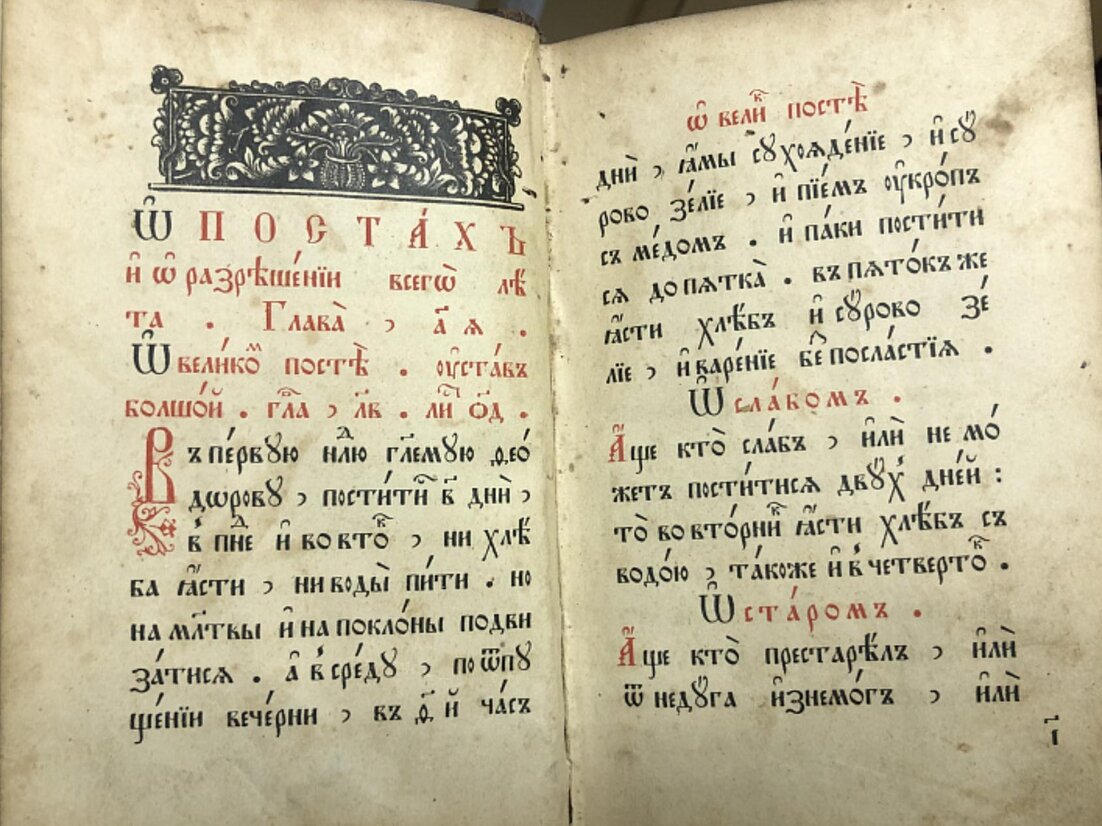 Ѡ҆ ПОСТА́ХЪ
и҆ ѡ҆ разрѣше́нїи всегѡ̀ лѣ́
та . Глава̀ , а҃ ѧ .
Ѡ҆ вели́коⷨ постѣ̀ . ᲂу҆ста́въ
болшо́й . гла҃ , л҃в . ли́ ѳ҃д .
Въ пе́рвую нⷣлю гл҃емꙋю ѳео́
дѡровꙋ , пости́ти́ⷭ в҃ днѝ ,
в̾ пнⷣе и҆ во вто́ⷦ , ни хлѣ́
ба ꙗ҆́сти , ни воды̀ пи́ти . но
на млⷭ҇твы и҆ на покло́ны подви
за́тисѧ . а҆ в̾ сре́дꙋ , по ѿпꙋ
ще́нїи вече́рни , въ д҃ й ча́съ
ѡ҆ вели́ⷦ постѣ̀
днѝ , ꙗ҆́мы сꙋхоѧде́нїе , и҆ сꙋ
рово зе́лїе , и҆ пїе́мъ ᲂу҆кро́пъ
съ ме́домъ . и҆ па́ки пости́ти
сѧ до пѧтка̀ . въ пѧто́къ же
ꙗ҆́сти хлѣ́бъ и҆ сꙋ́рово зе́
лїе , и҆ варе́нїе беⷥ посла́стїѧ .
Ѡ҆ сла́бомъ .
А҆́ще кто̀ сла́бъ , и҆лѝ не мо́
жетъ пости́тисѧ двꙋⷯ дне́й :
то̀ во вто́рниⷦ ꙗ҆́сти хлѣ́бъ съ
водо́ю , та́коже и҆ в̾ четверто́ⷦ .
Ѡ҆ ста́ромъ .
А҆́ще кто̀ престарѣ́лъ , и҆лѝ
ѿ недꙋ́га и҆знемо́гъ , и҆лѝ
і҃